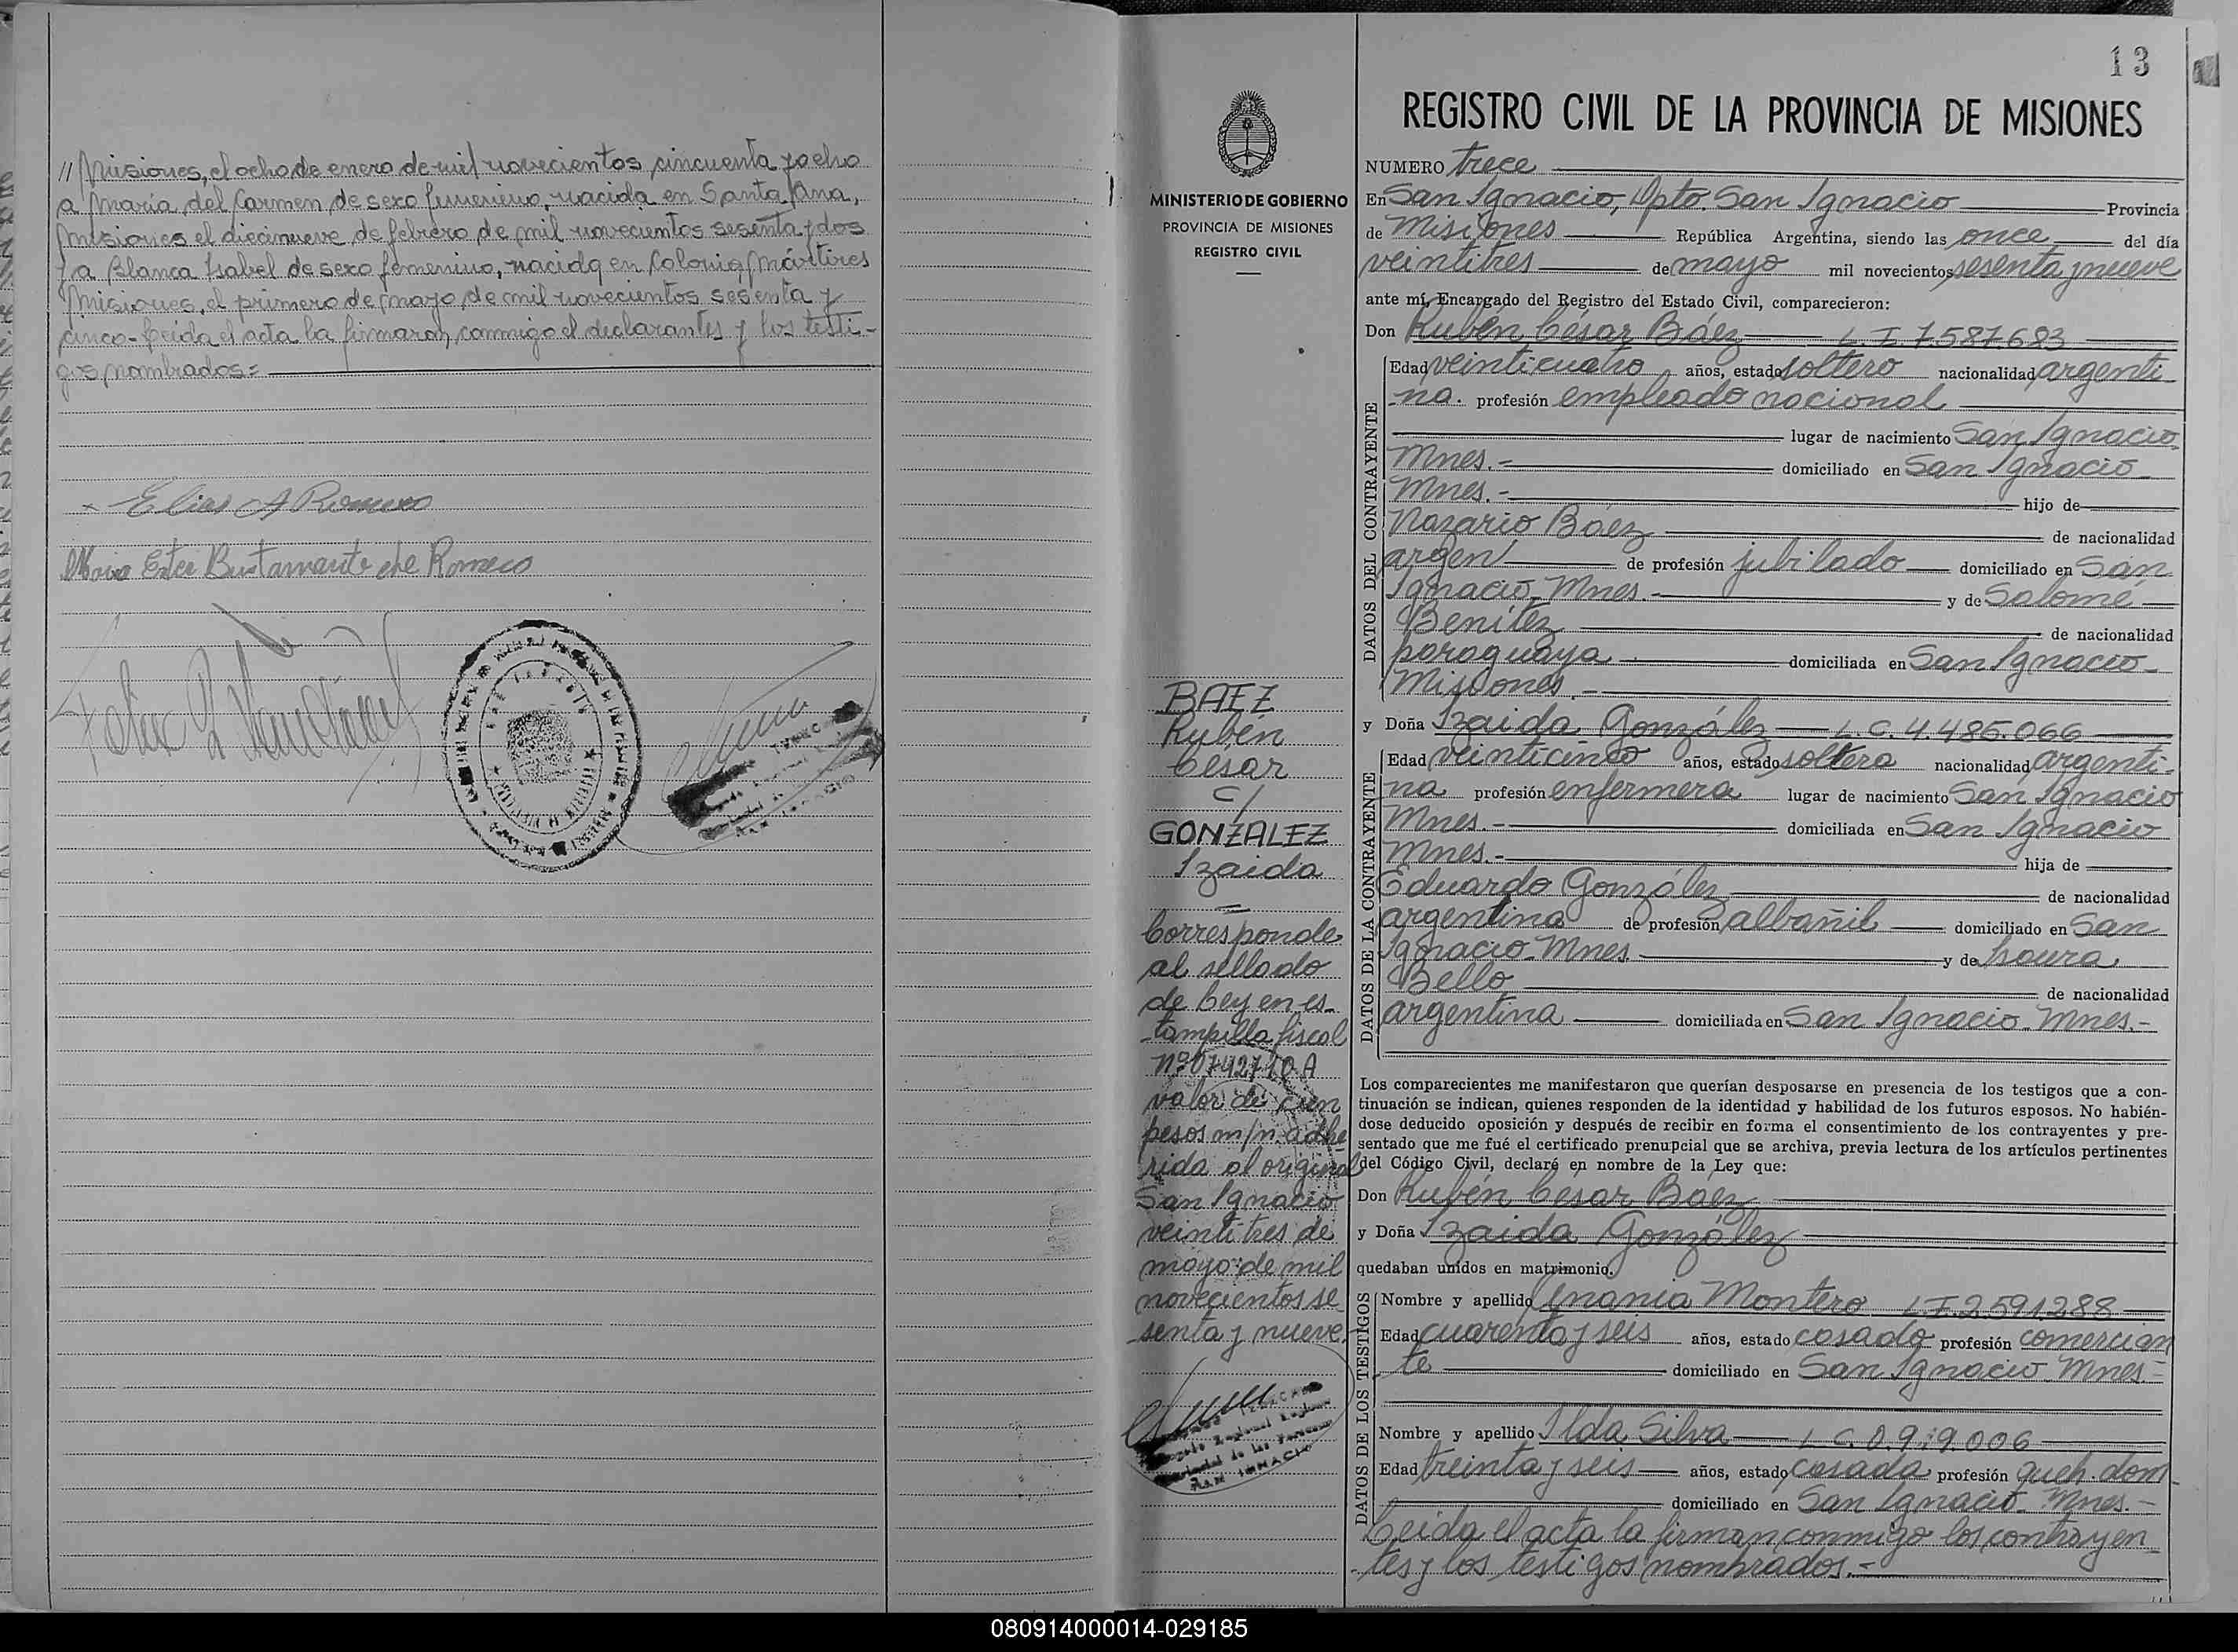 // Misiones, el ocho de enero de mil novecientos cincuenta y ocho
a María del Carmen de sexo femenino, nacida en Santa Ana,
Misiones el diecinueve de febrero de mil novecientos sesenta y dos
y a Blanca Isabel de sexo femenino, nacida en Colonia Mártires
Misiones, el primero de mayo de mil novecientos sesenta y
cinco - Leida el acta la firmaron conmigo el declarantes y los testi-
gos nombrados=
Elias A Romero
Maria Ester Bustamante de Romero
13
REGISTRO CIVIL DE LA PROVINCIA DE MISIONES
MINISTERIO DE GOBIERNO
PROVINCIA DE MISIONES
REGISTRO CIVIL
BAEZ
Rubén
César
c/
GONZALEZ
Izaida
=
Corresponde
al sellado
de Ley en es-
tampilla fiscal
Nº 0742710 A
valor de cien
pesos m/n adhe
rida al original
San Ignacio
veintitres de
mayo de mil
novecientos se
senta y nueve.
SAN IGNACIO
NUMERO trece
En San Ignacio, Dpto. San Ignacio Provincia
de Misiones República Argentina, siendo las once del día
veintitres de mayo mil novecientos sesenta y nueve
ante mí, Encargado del Registro del Estado Civil, comparecieron:
Don Rubén César Báez L. I. 7.587.683
DATOS DEL CONTRAYENTE
Edad veinticuatro años, estado soltero nacionalidad argenti-
na. profesión empleado nacional
lugar de nacimiento San Ignacio
Mnes.- domiciliado en San Ignacio
Mnes.- hijo de
Nazario Báez de nacionalidad
argen de profesión jubilado domiciliado en San
Ignacio-Mnes.- y de Salomé
Benítez de nacionalidad
paraguaya domiciliada en San Ignacio
Misiones.-
y Doña Izaida González L.C. 4.485.066
DATOS DE LA CONTRAYENTE
Edad veinticinco años, estado soltera nacionalidad argenti-
na profesión enfermera lugar de nacimiento San Ignacio
Mnes.- domiciliada en San Ignacio
Mnes.- hija de
Eduardo González de nacionalidad
argentina de profesión albañil domiciliado en San
Ignacio-Mnes. y de Laura
Bello de nacionalidad
argentina domiciliada en San Ignacio-Mnes.-
Los comparecientes me manifestaron que querían desposarse en presencia de los testigos que a con-
tinuación se indican, quienes responden de la identidad y habilidad de los futuros esposos. No habién-
dose deducido oposición y después de recibir en forma el consentimiento de los contrayentes y pre-
sentado que me fué el certificado prenupcial que se archiva, previa lectura de los artículos pertinentes
del Código Civil, declaré en nombre de la Ley que:
Don Rubén César Báez
y Doña Izaida González
quedaban unidos en matrimonio.
DATOS DE LOS TESTIGOS
Nombre y apellido Anania Montero L.I. 2.591.288
Edad cuarenta y seis años, estado casado profesión comercian
te domiciliado en San Ignacio-Mnes.-
Nombre y apellido Ilda Silva L C. 0.919.006
Edad treinta y seis años, estado casada profesión queh. dom.
domiciliado en San Ignacio-Mnes.-
Leida el acta la firman conmigo los contrayen
tes y los testigos nombrados.-
080914000014-029185